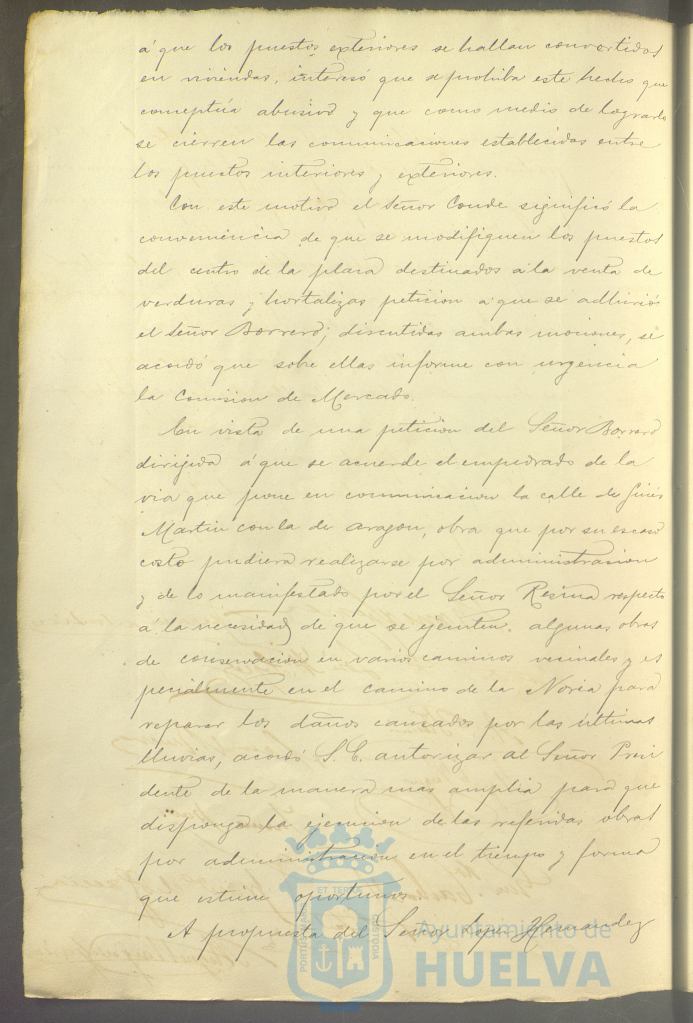 á que los puestos exteriores se hallan convertidos
en viviendas, interesó que se prohiba este hecho que
conceptúa abusivo y que como medio de lograrlo
se cierren las comunicaciones establecidas entre
los puestos interiores y exteriores.
Con este motivo el Señor Conde significó la
conveniencia de que se modifiquen los puestos
del centro de la plaza destinados á la venta de
verduras y hortalizas peticion á que se adhirió
el Señor Borrero; discutidas ambas mociones, se
acordó que sobre ellas informe con urgencia
la Comision de Mercado.
En vista de una peticion del Señor Borrero
dirigida á que se acuerde el empedrado de la
via que pone en comunicacion la calle de Ginés
Martin con la de Aragon, obra que por su escaso
costo pudiera realizarse por administracion
y de lo manifestado por el Señor Resina respecto
á la necesidad de que se ejecuten algunas obras
de conservacion en varios caminos vecinales y es
pecialmente en el camino de la Noria para
reparar los daños causados por las últimas
lluvias, acordó S. E. autorizar al Señor Presi
dente de la manera mas amplia para que
disponga la ejecucion de las referidas obras
por administracion en el tiempo y forma
que estime oportunos.
A propuesta del Señor Lopez Hernandez
Ayuntamiento de
HUELVA
PORTUS MARIS ET TERRAE CUSTODIA